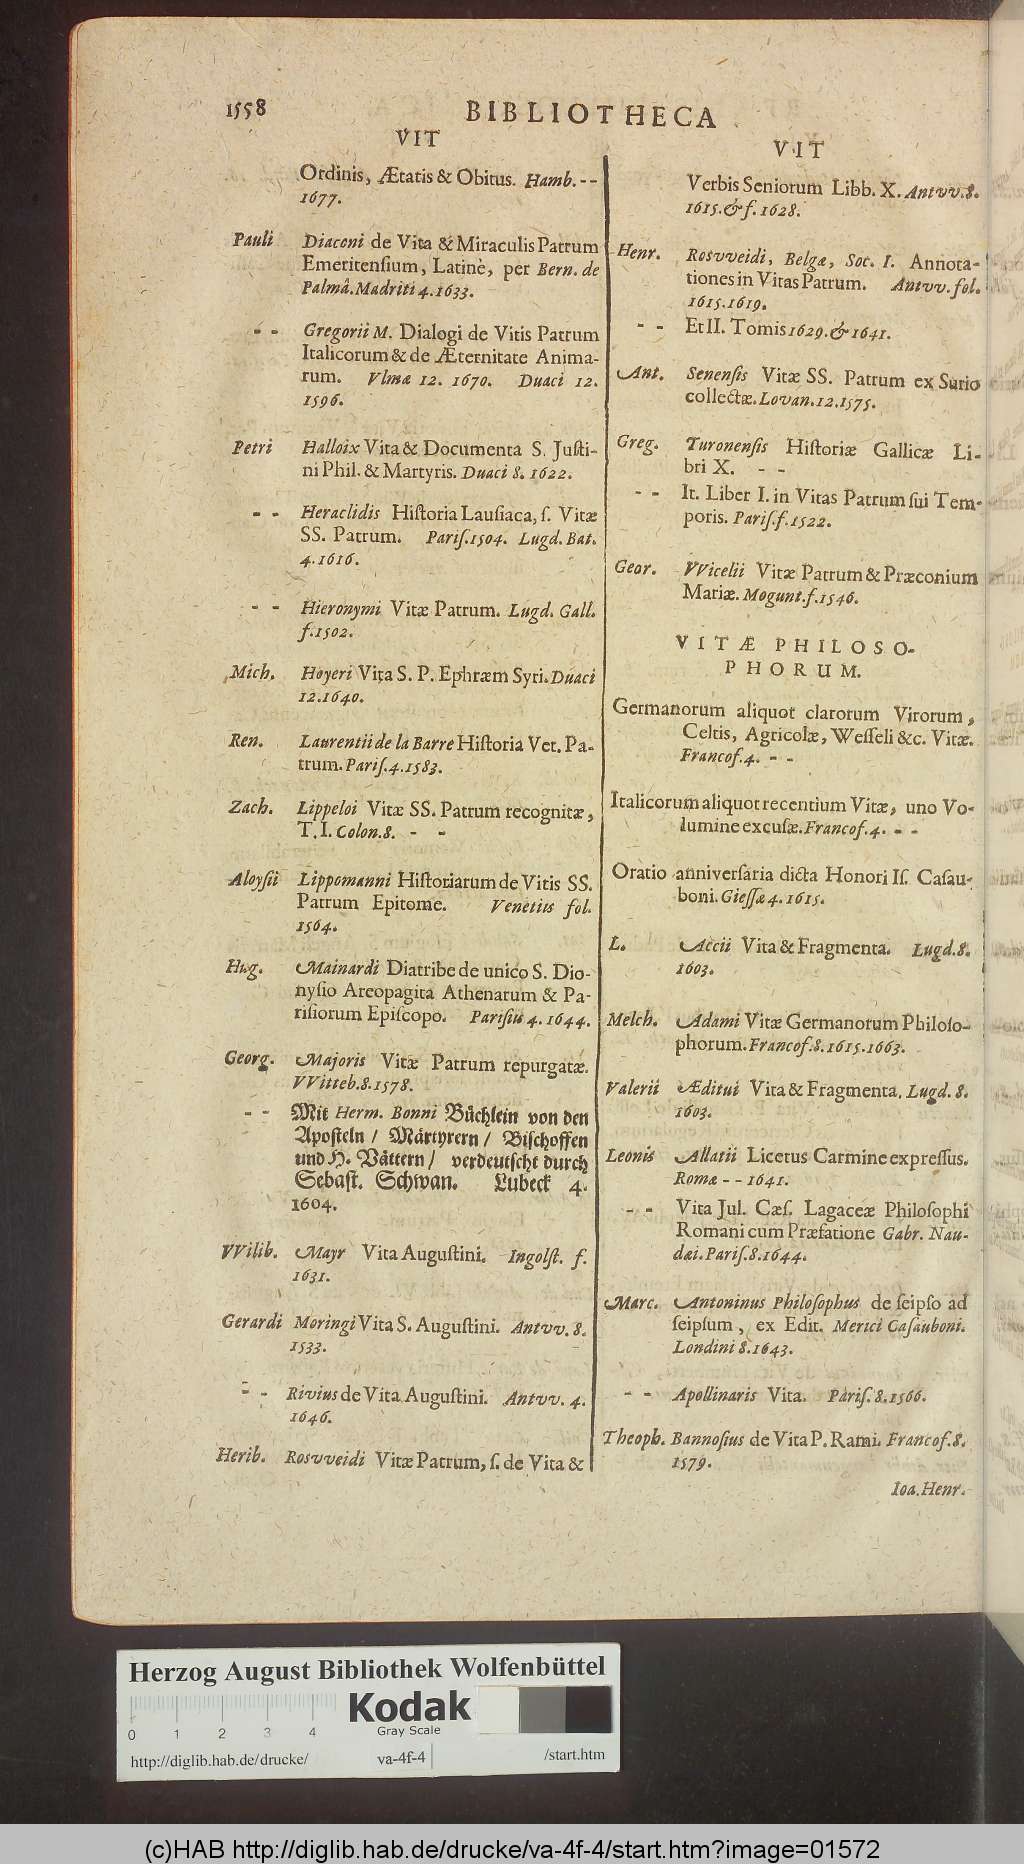 1558 BIBLIOTHECA
VIT
Ordinis, Ætatis & Obitus. Hamb. - -
1677.
Pauli Diaconi de Vita & Miraculis Patrum
Emeritenſium, Latinè, per Bern. de
Palmâ. Madriti 4. 1633.
- - Gregorii M. Dialogi de Vitis Patrum
Italicorum & de Æternitate Anima-
rum. Vlmæ 12. 1670. Duaci 12.
1596.
Petri Halloix Vita & Documenta S. Juſti-
ni Phil. & Martyris. Duaci 8. 1622.
- - Heraclidis Hiſtoria Lauſiaca, ſ. Vitæ
SS. Patrum. Pariſ. 1504. Lugd. Bat.
4. 1616.
- - Hieronymi Vitæ Patrum. Lugd. Gall.
f. 1502.
Mich. Hoyeri Vita S. P. Ephræm Syri. Duaci
12. 1640.
Ren. Laurentii de la Barre Hiſtoria Vet. Pa-
trum. Pariſ. 4. 1583.
Zach. Lippeloi Vitæ SS. Patrum recognitæ,
T. I. Colon. 8. - -
Aloyſii Lippomanni Hiſtoriarum de Vitis SS.
Patrum Epitome. Venetiis fol.
1564.
Hug. Mainardi Diatribe de unico S. Dio-
nyſio Areopagita Athenarum & Pa-
riſiorum Epiſcopo. Pariſiis 4. 1644.
Georg. Majoris Vitæ Patrum repurgatæ.
VVitteb. 8. 1578.
- - Mit Herm. Bonni Büchlein von den
Apoſteln / Märtyrern / Biſchoffen
und H. Vättern / verdeutſcht durch
Sebaſt. Schwan. Lubeck 4.
1604.
VVilib. Mayr Vita Auguſtini. Ingolſt. f.
1631.
Gerardi Moringi Vita S. Auguſtini. Antvv. 8.
1533.
- - Rivius de Vita Auguſtini. Antvv. 4.
1646.
Herib. Rosvveidi Vitæ Patrum, ſ. de Vita &
VIT
Verbis Seniorum Libb. X. Antvv. 8.
1615. & f. 1628.
Henr. Rosvveidi, Belgæ, Soc. I. Annota-
tiones in Vitas Patrum. Antvv. fol.
1615. 1619.
- - Et II. Tomis 1629. & 1641.
Ant. Senenſis Vitæ SS. Patrum ex Surio
collectæ. Lovan. 12. 1575.
Greg. Turonenſis Hiſtoriæ Gallicæ Li-
bri X. - -
- - It. Liber I. in Vitas Patrum ſui Tem-
poris. Pariſ. f. 1522.
Geor. VVicelii Vitæ Patrum & Præconium
Mariæ. Mogunt. f. 1546.
VITÆ PHILOSO-
PHORUM.
Germanorum aliquot clarorum Virorum,
Celtis, Agricolæ, Weſſeli &c. Vitæ.
Francof. 4. - -
Italicorum aliquot recentium Vitæ, uno Vo-
lumine excuſæ. Francof. 4. - -
Oratio anniverſaria dicta Honori Iſ. Caſau-
boni. Gieſſæ 4. 1615.
L. Accii Vita & Fragmenta. Lugd. 8.
1603.
Melch. Adami Vitæ Germanorum Philoſo-
phorum. Francof. 8. 1615. 1663.
Valerii Æditui Vita & Fragmenta. Lugd. 8.
1603.
Leonis Allatii Licetus Carmine expreſſus.
Romæ - - 1641.
- - Vita Jul. Cæſ. Lagaceæ Philoſophi
Romani cum Præfatione Gabr. Nau-
dæi. Pariſ. 8. 1644.
Marc. Antoninus Philoſophus de ſeipſo ad
ſeipſum, ex Edit. Merici Caſauboni.
Londini 8. 1643.
- - Apollinaris Vita. Pariſ. 8. 1566.
Theoph. Bannoſius de Vita P. Rami. Francof. 8.
1579.
Ioa. Henr.
Herzog August Bibliothek Wolfenbüttel
Kodak
Gray Scale
0 1 2 3 4
http://diglib.hab.de/drucke/ va-4f-4 /start.htm
(c)HAB http://diglib.hab.de/drucke/va-4f-4/start.htm?image=01572